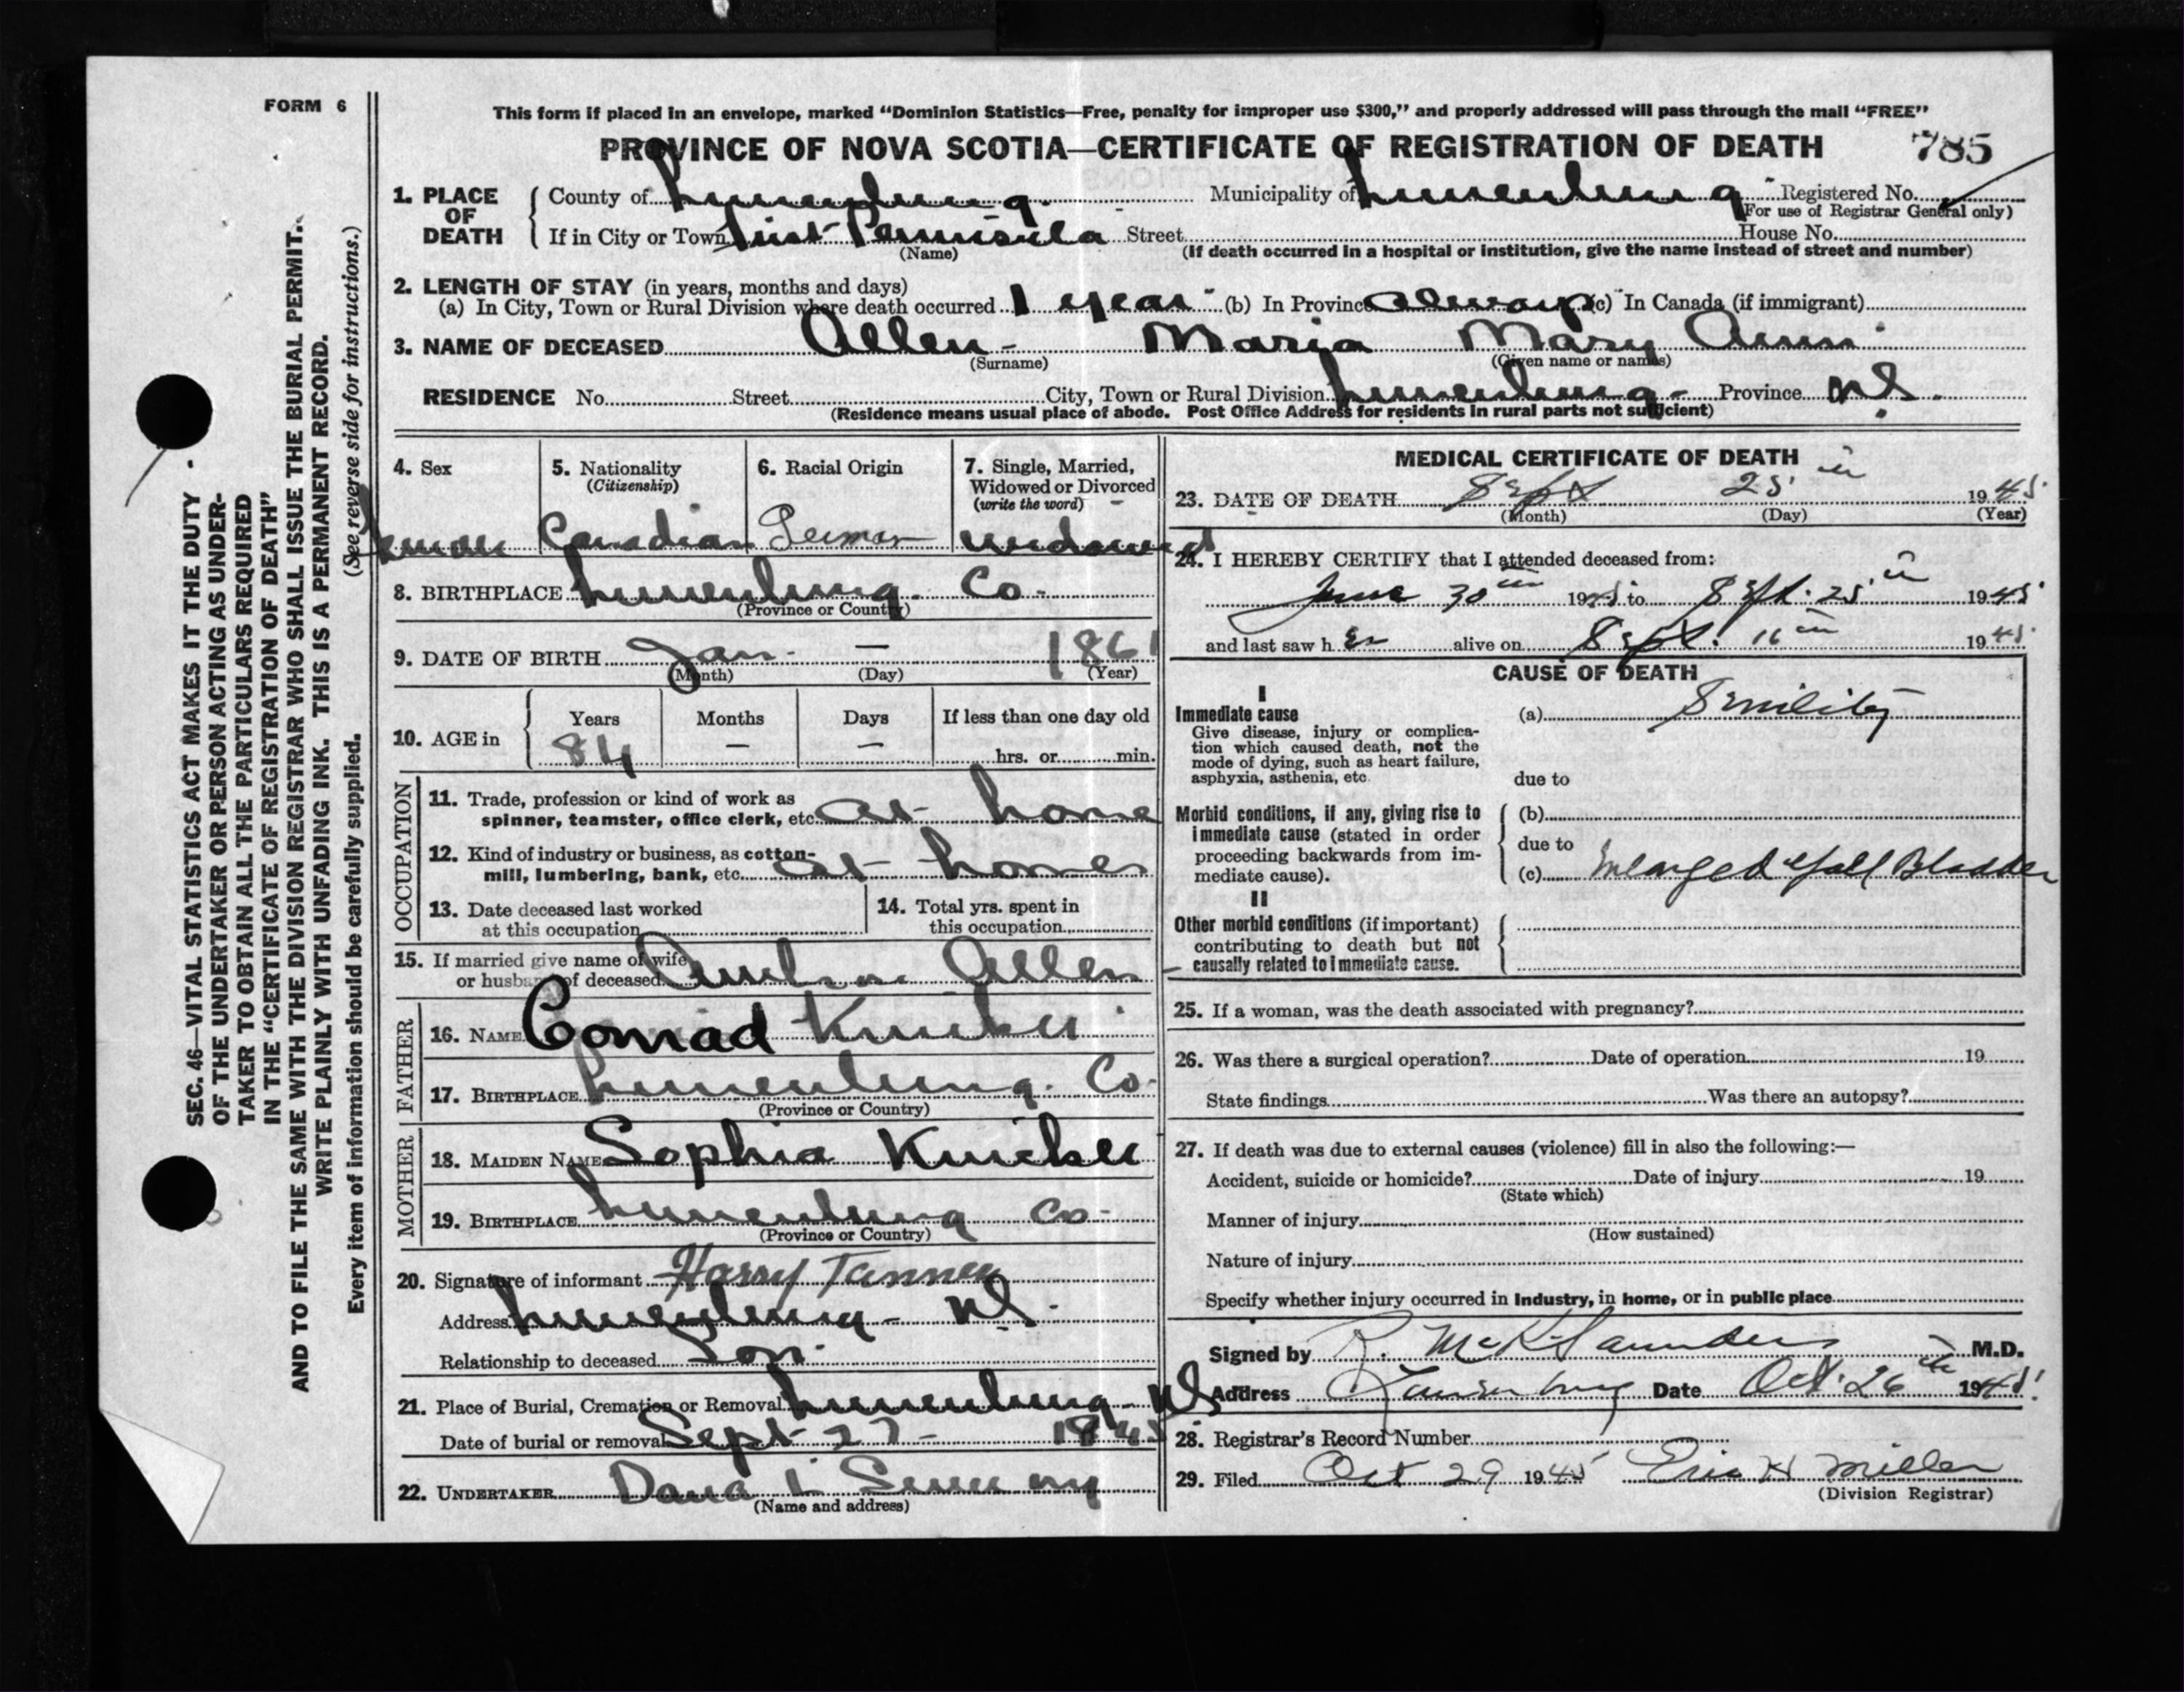 FORM 6
This form if placed in an envelope, marked "Dominion Statistics—Free, penalty for improper use $300," and properly addressed will pass through the mail "FREE"
PROVINCE OF NOVA SCOTIA—CERTIFICATE OF REGISTRATION OF DEATH 785
1. PLACE OF DEATH
County of Lunenburg. Municipality of Lunenburg Registered No.
(For use of Registrar General only)
If in City or Town First Peninsula Street House No.
(Name) (If death occurred in a hospital or institution, give the name instead of street and number)
2. LENGTH OF STAY (in years, months and days)
(a) In City, Town or Rural Division where death occurred 1 year (b) In Province always (c) In Canada (if immigrant)
3. NAME OF DECEASED Allen - Maria Mary Ann
(Surname) (Given name or names)
RESIDENCE No. Street City, Town or Rural Division Lunenburg - Province N.S.
(Residence means usual place of abode. Post Office Address for residents in rural parts not sufficient)
4. Sex
5. Nationality
(Citizenship)
Canadian
6. Racial Origin
German
7. Single, Married,
Widowed or Divorced
(write the word)
widowed
8. BIRTHPLACE Lunenburg. Co -
(Province or Country)
9. DATE OF BIRTH Jan. — 1861
(Month) (Day) (Year)
10. AGE in
Years Months Days If less than one day old
84 — — hrs. or min.
OCCUPATION
11. Trade, profession or kind of work as
spinner, teamster, office clerk, etc. at home
12. Kind of industry or business, as cotton-
mill, lumbering, bank, etc. at home
13. Date deceased last worked
at this occupation
14. Total yrs. spent in
this occupation
15. If married give name of wife
or husband of deceased Allen
FATHER
16. NAME Conrad
17. BIRTHPLACE Lunenburg. Co.
(Province or Country)
MOTHER
18. MAIDEN NAME Sophia
19. BIRTHPLACE Lunenburg Co -
(Province or Country)
20. Signature of informant Harry Tanner
Address Lunenburg - N.S.
Relationship to deceased Son.
21. Place of Burial, Cremation or Removal Lunenburg - N.S.
Date of burial or removal Sept 27 - 1945
22. UNDERTAKER Dana L Sweeny
(Name and address)
MEDICAL CERTIFICATE OF DEATH
23. DATE OF DEATH Sept 25th 1945
(Month) (Day) (Year)
24. I HEREBY CERTIFY that I attended deceased from:
June 30th 1945 to Sept. 25th 1945
and last saw her alive on Sept. 16th 1945
CAUSE OF DEATH
I
Immediate cause
Give disease, injury or complica-
tion which caused death, not the
mode of dying, such as heart failure,
asphyxia, asthenia, etc.
(a) Senility
due to
Morbid conditions, if any, giving rise to
immediate cause (stated in order
proceeding backwards from im-
mediate cause).
(b)
due to
(c) Enlarged Gall Bladder
II
Other morbid conditions (if important)
contributing to death but not
causally related to immediate cause.
25. If a woman, was the death associated with pregnancy?
26. Was there a surgical operation? Date of operation 19
State findings Was there an autopsy?
27. If death was due to external causes (violence) fill in also the following:—
Accident, suicide or homicide? Date of injury 19
(State which)
Manner of injury
(How sustained)
Nature of injury
Specify whether injury occurred in industry, in home, or in public place
Signed by R. McK Saunders M.D.
Address Lunenburg Date Oct. 26th 1945
28. Registrar's Record Number
29. Filed Oct 29 1945 Eric H Miller
(Division Registrar)
SEC. 46—VITAL STATISTICS ACT MAKES IT THE DUTY
OF THE UNDERTAKER OR PERSON ACTING AS UNDER-
TAKER TO OBTAIN ALL THE PARTICULARS REQUIRED
IN THE "CERTIFICATE OF REGISTRATION OF DEATH"
AND TO FILE THE SAME WITH THE DIVISION REGISTRAR WHO SHALL ISSUE THE BURIAL PERMIT.
WRITE PLAINLY WITH UNFADING INK. THIS IS A PERMANENT RECORD.
Every item of information should be carefully supplied. (See reverse side for instructions.)